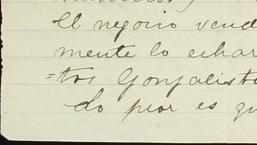 El negocio vend
mente lo echar
=tos Gonzalist
Lo peor es qu